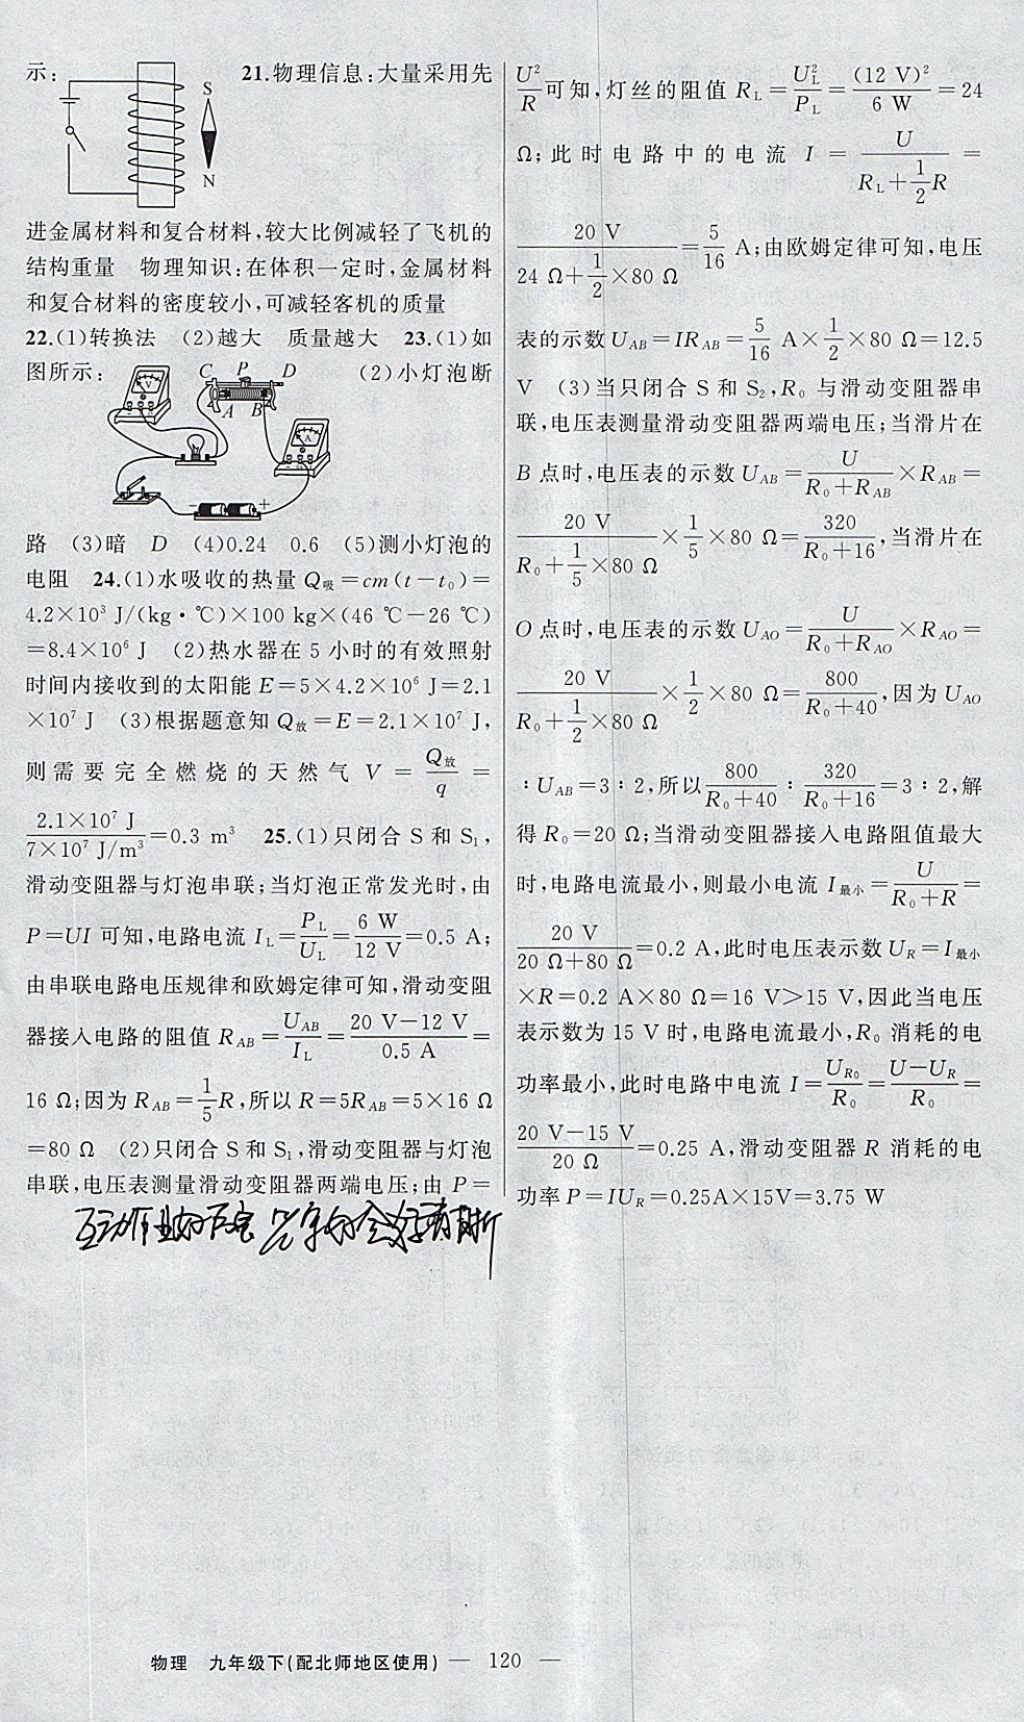 示:
S
N
21.物理信息:大量采用先
进金属材料和复合材料,较大比例减轻了飞机的
结构重量 物理知识:在体积一定时,金属材料
和复合材料的密度较小,可减轻客机的质量
22.(1)转换法 (2)越大 质量越大 23.(1)如
图所示:
V
C P D
A B
A
- +
(2)小灯泡断
路 (3)暗 D (4)0.24 0.6 (5)测小灯泡的
电阻 24.(1)水吸收的热量 Q吸=cm(t-t₀)=
4.2×10³ J/(kg·℃)×100 kg×(46 ℃-26 ℃)
=8.4×10⁶ J (2)热水器在 5 小时的有效照射
时间内接收到的太阳能 E=5×4.2×10⁶ J=2.1
×10⁷ J (3)根据题意知 Q放=E=2.1×10⁷ J,
则需要完全燃烧的天然气 V=Q放/q=
2.1×10⁷ J/7×10⁷ J/m³=0.3 m³ 25.(1)只闭合 S 和 S₁,
滑动变阻器与灯泡串联;当灯泡正常发光时,由
P=UI 可知,电路电流 I_L=P_L/U_L=6 W/12 V=0.5 A;
由串联电路电压规律和欧姆定律可知,滑动变阻
器接入电路的阻值 R_AB=U_AB/I_L=20 V-12 V/0.5 A=
16 Ω;因为 R_AB=1/5R,所以 R=5R_AB=5×16 Ω
=80 Ω (2)只闭合 S 和 S₁,滑动变阻器与灯泡
串联,电压表测量滑动变阻器两端电压;由 P=
U²/R可知,灯丝的阻值 R_L=U_L²/P_L=(12 V)²/6 W=24
Ω;此时电路中的电流 I=U/R_L+1/2R=
20 V/24 Ω+1/2×80 Ω=5/16 A;由欧姆定律可知,电压
表的示数 U_AB=IR_AB=5/16 A×1/2×80 Ω=12.5
V (3)当只闭合 S 和 S₂,R₀ 与滑动变阻器串
联,电压表测量滑动变阻器两端电压;当滑片在
B 点时,电压表的示数 U_AB=U/R₀+R_AB×R_AB=
20 V/R₀+1/5×80 Ω×1/5×80 Ω=320/R₀+16,当滑片在
O 点时,电压表的示数 U_AO=U/R₀+R_AO×R_AO=
20 V/R₀+1/2×80 Ω×1/2×80 Ω=800/R₀+40,因为 U_AO
:U_AB=3:2,所以800/R₀+40:320/R₀+16=3:2,解
得 R₀=20 Ω;当滑动变阻器接入电路阻值最大
时,电路电流最小,则最小电流 I最小=U/R₀+R=
20 V/20 Ω+80 Ω=0.2 A,此时电压表示数 U_R=I最小
×R=0.2 A×80 Ω=16 V>15 V,因此当电压
表示数为 15 V 时,电路电流最小,R₀ 消耗的电
功率最小,此时电路中电流 I=U_R₀/R₀=U-U_R/R₀=
20 V-15 V/20 Ω=0.25 A,滑动变阻器 R 消耗的电
功率 P=IU_R=0.25A×15V=3.75 W
物理 九年级下(配北师地区使用) — 120 —